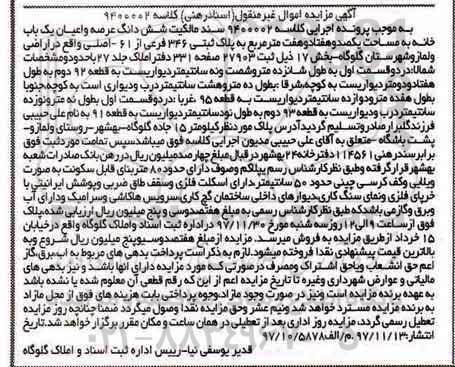 آگهی مزایده اموال غیرمنقول(اسنادرهنی) کلاسه ۹۴۰۰۰۰۲
به موجب پرونده اجرایی کلاسه ۹۴۰۰۰۰۲ سند مالکیت شش دانگ عرصه واعیان یک باب
خانه به مساحت یکصدوهفتادوهفت مترمربع به پلاک ثبتی ۳۴۶ فرعی از ۶۱ -اصلی واقع دراراضی
ولماروزشهرستان گلوگاه-بخش ۱۷ ذیل ثبت ۲۷۹۰۳ صفحه ۳۳۱ دفتراملاک جلد ۲۷ باحدودومشخصات
شمالا:دردوقسمت اول به طول شانزده متروشصت ونه سانتیمتردیواریست به قطعه ۹۲ دوم به طول
هفتادودومتردیواریست به کوچه‌شرقا :بطول ده متروهشت سانتیمتردرب ودیواری است به کوچه‌جنوبا
بطول هفده مترودوازده سانتیمتردیواریست به قطعه ۹۵ غربا :دردوقسمت اول بطول نه مترونوزده
سانتیمتردرب ودیواریست به قطعه ۹۳ دوم به طول نودسانتیمتردیواریست به قطعه ۹۱ به نام علی حبیبی
فرزندگلبرارصادروتسلیم گردیدآدرس پلاک موردنظرکیلومتر ۱۵ جاده گلوگاه-بهشهر-روستای ولمازو-
پشت باشگاه -متعلق به آقای علی حبیبی مدیون اجرایی کلاسه فوق میباشدسپس تمامت موردثبت فوق
برابرسندرهنی ۱۱۴۵۶۱دفترخانه ۲۴بهشهردرقبال مبلغ چهارصدمیلیون ریال دررهن بانک صادرات شعبه
بهشهرقرارگرفته وطبق نظرکارشناس رسم بیپلاکم وصوف دارای حدود ۸۰ متربنای قابل سکونت به صورت
ویلایی وکف کرسی چینی حدود ۵۰ سانتیمتردارای اسکلت فلزی وسقف طاق ضربی وپوشش ایرانیتی با
خرپای فلزی ونمای سنگ کاری،دیوارهای داخلی ساختمان گچ کاری،سرویس هاکاشی وسرامیک ودارای آب
وبرق وگازمی باشدکه طبق نظرکارشناس رسمی به مبلغ هفتصدوسی و پنج میلیون ریال ارزیابی شده،پلاک
فوق ازساعت ۹ الی۱۲ روزسه شنبه مورخ ۹۷/۱۱/۳۰ در اداره ثبت اسناد واملاک گلوگاه واقع درخیابان
۱۵ خرداد ازطریق مزایده به فروش میرسد. مزایده ازمبلغ هفتصدوسیوپنج میلیون ریال شروع وبه
بالاترین قیمت پیشنهادی نقدا فروخته میشود.لازم به ذکراست پرداخت بدهی های مربوط به اب،برق،گاز
اعم حق انشعاب ویاحق اشتراک ومصرف درصورتی که مورد مزایده دارای انها باشد و نیز بدهی های
مالیاتی و عوارض شهرداری وغیره تا تاریخ مزایده اعم از این که رقم قطعی آن معلوم شده یا نشده باشد
به عهده برنده مزایده است ونیز در صورت وجود مازاد،وجوه پرداختی بابت هزینه های فوق از محل مازاد
به برنده مزایده مسترد خواهد شد ونیم عشر وحق مزایده نقدا وصول میگردد.ضمنا چنانچه روز مزایده
تعطیل رسمی گردد، مزایده روز اداری بعد از تعطیلی در همان ساعت و مکان مقرر برگزار خواهد شد.تاریخ
انتشار:۹۷/۱۱/۱۳ .م/الف ۹۷/۱۰/۵۸۷۸
قدیر یوسفی نیا-رییس اداره ثبت اسناد و املاک گلوگاه